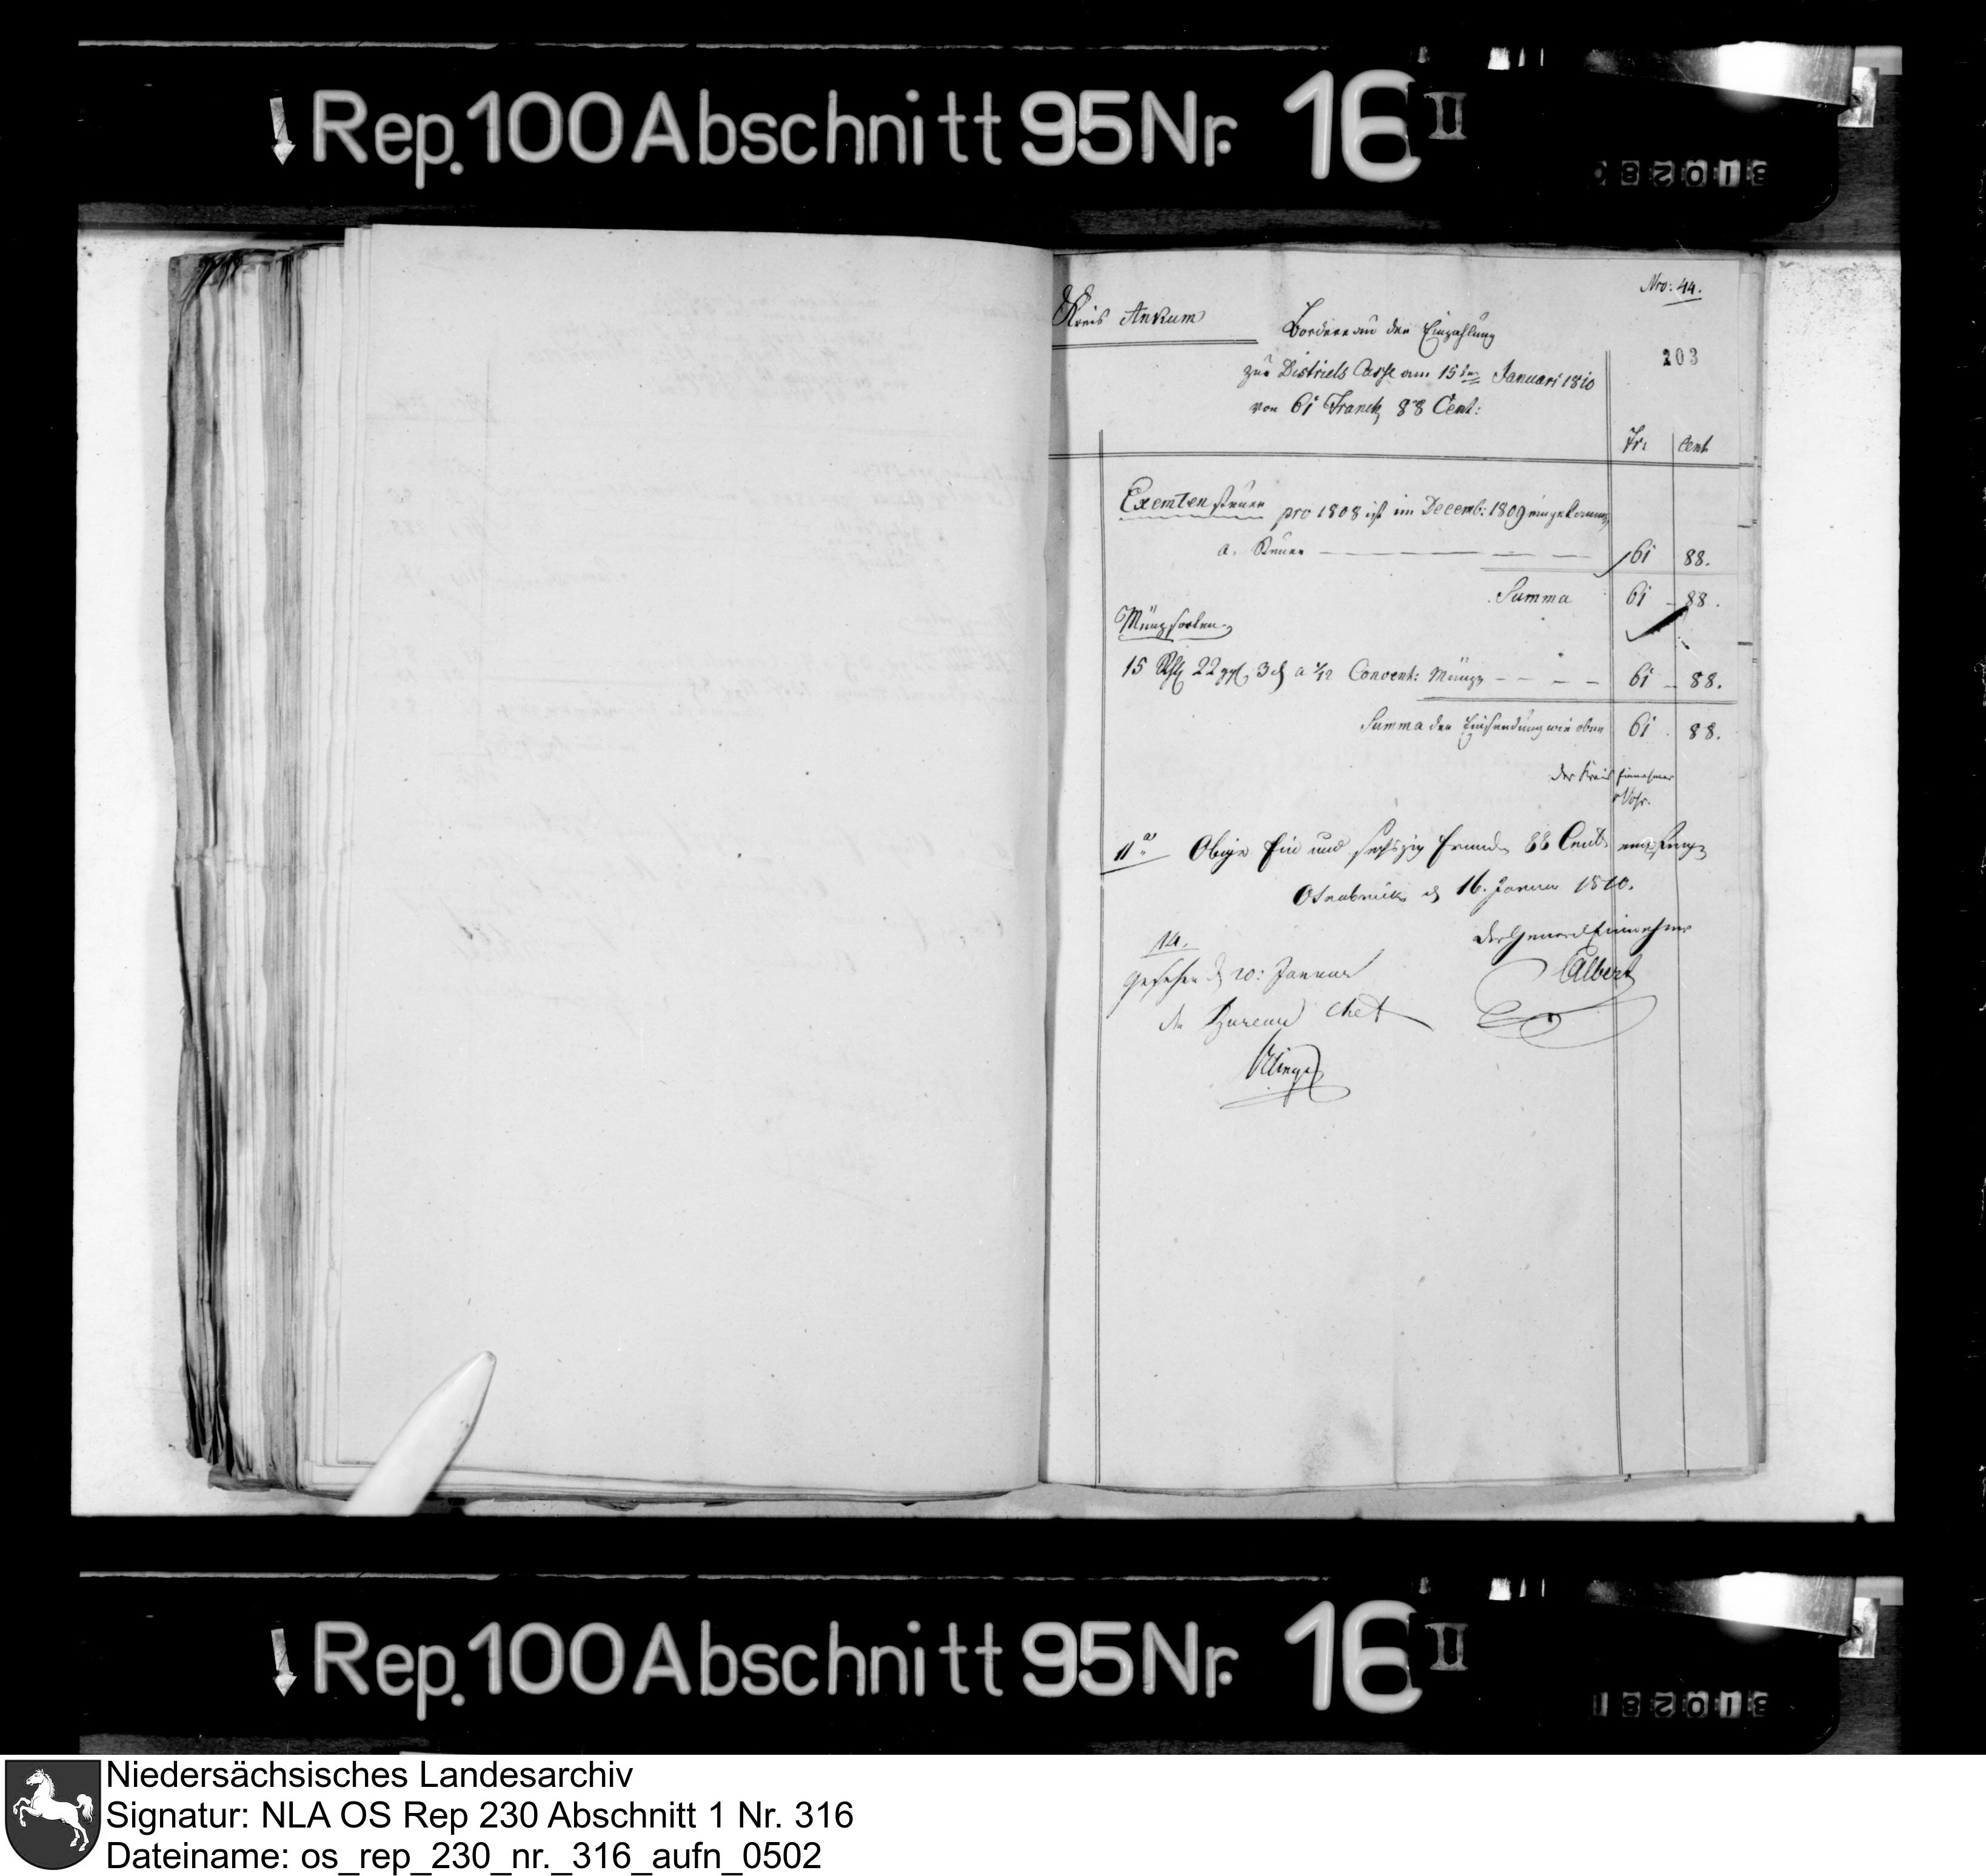 Rep. 100 Abschnitt 95 Nr. 16 II
Nro: 44.
Kreis Ankum
Bordereau der Einzahlung
203
zur Districts Casse am 15ten Januari 1810
von 61 Franck 88 Cent:
Fr: Cent
Exemtensteuer pro 1808 ist im Decemb: 1809 eingekommen
a. Steuer — — — 61 88.
Summa 61 - 88.
Münzsorten
15 Rthl 22 ggl 3 d a 1/12 Convent: Münze - - - - 61 - 88.
Summa der Einsendung wie oben 61 . 88.
der Kreis Einnehmer
11 a Obige Ein und sechszig Franck 88 Cent empfangen
Osnabrück d 16. Januar 1810.
der General Einnehmer
Albert
14.
Gesehen d 20: Januar
der Bureau Chef
Rep. 100 Abschnitt 95 Nr. 16 II
Niedersächsisches Landesarchiv
Signatur: NLA OS Rep 230 Abschnitt 1 Nr. 316
Dateiname: os_rep_230_nr._316_aufn_0502